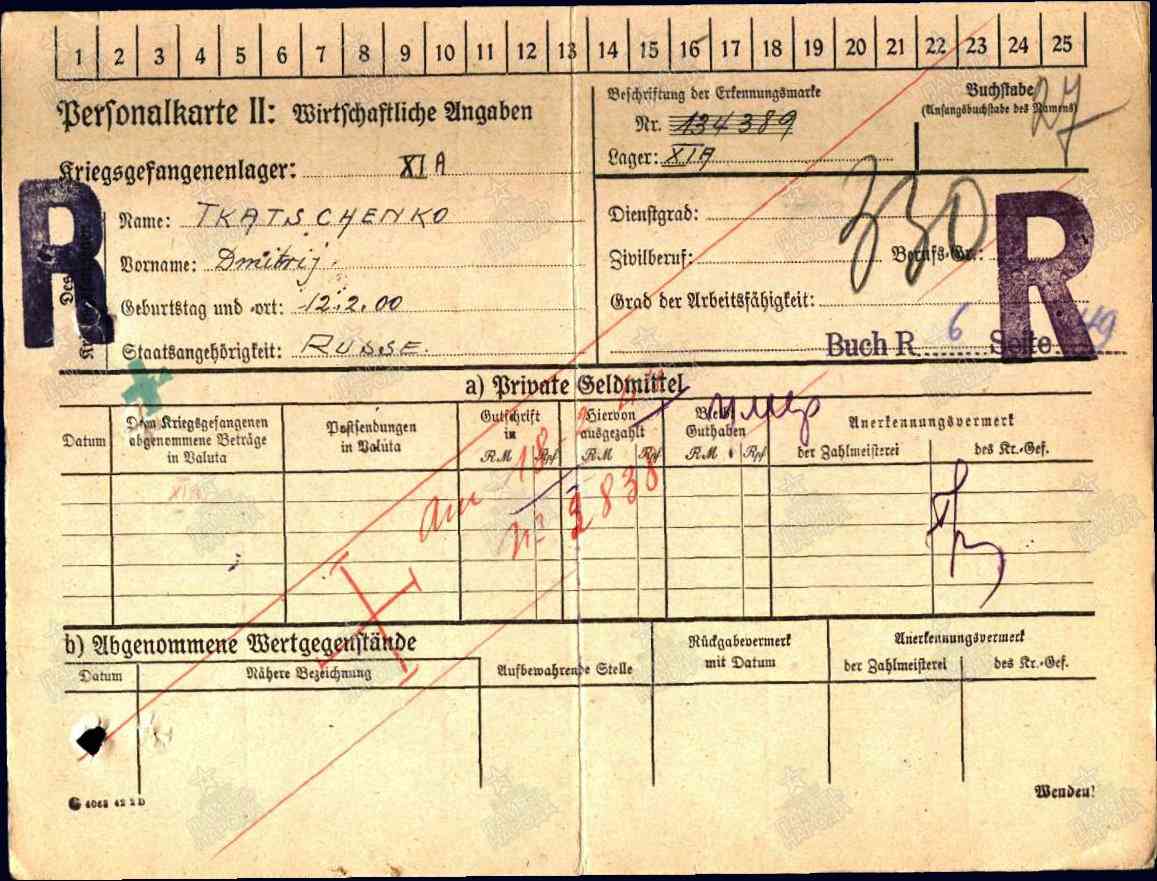 1 2 3 4 5 6 7 8 9 10 11 12 13 14 15 16 17 18 19 20 21 22 23 24 25
Personalkarte II: Wirtschaftliche Angaben
Kriegsgefangenenlager: XI A
Name: TKATSCHENKO
Vorname: Dmitrij.
Geburtstag und -ort: 12.2.00
Staatsangehörigkeit: RUSSE.
R
Beschriftung der Erkennungsmarke
Nr. 134389
Lager: XI A
Buchstabe
(Anfangsbuchstabe des Namens)
27
Dienstgrad:
330
Zivilberuf: Berufs-Gr.:
Grad der Arbeitsfähigkeit:
R
Buch R 6 Seite 49
a) Private Geldmittel
Datum
Dem Kriegsgefangenen
abgenommene Beträge
in Valuta
Postsendungen
in Valuta
Gutschrift
in
RM Rpf
Hiervon
ausgezahlt
RM Rpf
Bleibt
Guthaben
RM Rpf
умер
Anerkennungsvermerk
der Zahlmeisterei des Kr.-Gef.
Am 18
№ 2838
b) Abgenommene Wertgegenstände
Datum Nähere Bezeichnung
Aufbewahrende Stelle
Rückgabevermerk
mit Datum
Anerkennungsvermerk
der Zahlmeisterei des Kr.-Gef.
4063 42 2 D
Wenden!